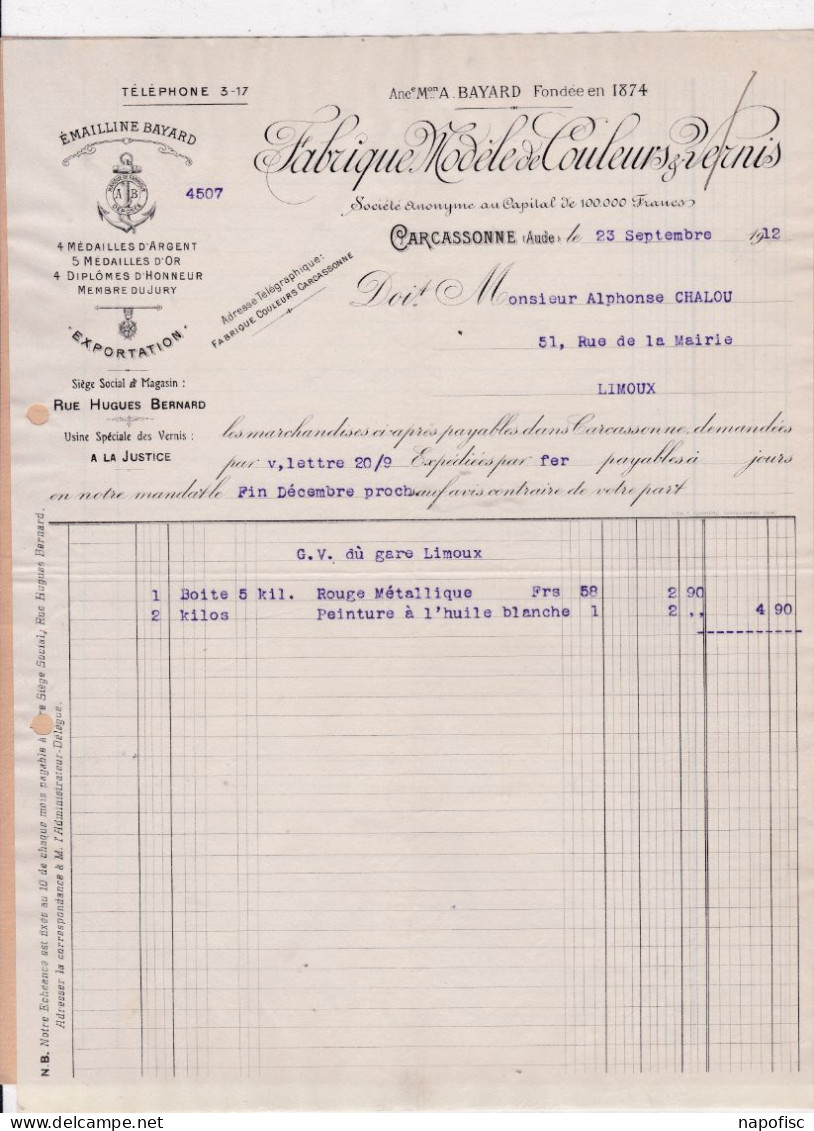 TÉLÉPHONE 3-17
Anc^e M^on A. BAYARD Fondée en 1874
ÉMAILLINE BAYARD
Fabrique Modèle de Couleurs & Vernis
MARQUE DE FABRIQUE
A B
DÉPOSÉE
4507
Société Anonyme au Capital de 100.000 Francs
CARCASSONNE (Aude) le 23 Septembre 1912
4 MÉDAILLES D'ARGENT
5 MÉDAILLES D'OR
4 DIPLÔMES D'HONNEUR
MEMBRE DU JURY
Adresse Télégraphique:
FABRIQUE COULEURS CARCASSONNE
Doit Monsieur Alphonse CHALOU
51, Rue de la Mairie
LIMOUX
EXPORTATION
Siège Social & Magasin :
RUE HUGUES BERNARD
Usine Spéciale des Vernis :
A LA JUSTICE
les marchandises ci-après payables dans Carcassonne, demandées
par v,lettre 20/9 Expédiées par fer payables à jours
en notre mandat le Fin Décembre proch sauf avis contraire de votre part
G.V. dù gare Limoux
1 Boite 5 kil. Rouge Métallique Frs 58 2 90
2 kilos Peinture à l'huile blanche 1 2 ,, 4 90
N.B. Notre Echéance est fixée au 10 de chaque mois payable à Siège Social, Rue Hugues Bernard.
Adresser la correspondance à M. l'Administrateur-Délégué.
www.delcampe.net
napofisc